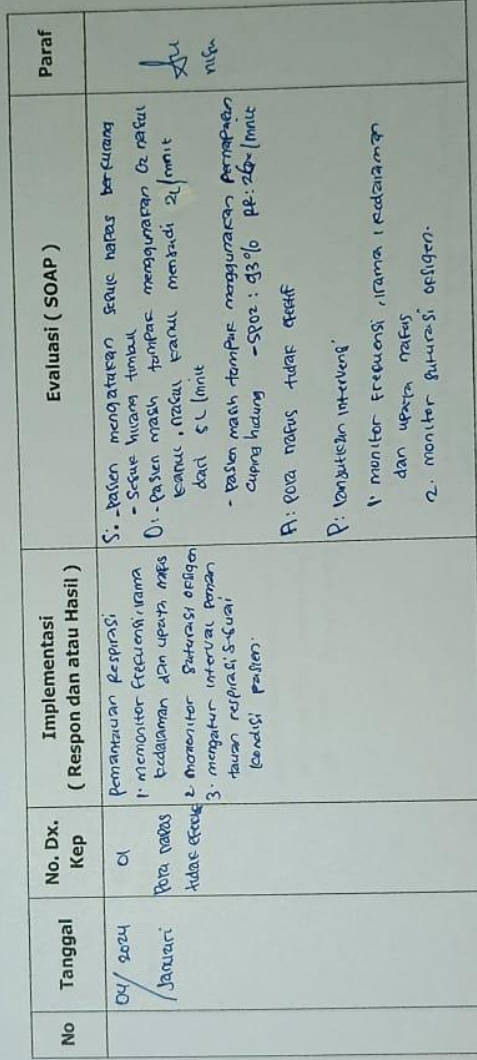 No
Tanggal
No. Dx.
Kep
Implementasi
( Respon dan atau Hasil )
Evaluasi ( SOAP )
Paraf
04/ 2024
/ Januari
01
Pola napas
tidak efektif
Pemantauan Respirasi
1. memonitor frekuensi, irama
kedalaman dan upaya nafas
2. monenitor saturasi oksigen
3. mengatur interval peman
tauan respirasi sesuai
kondisi pasien.
S: - Pasien mengatakan sesak napas berkurang
- Sesak hilang timbul
O: - Pasien masih tampak menggunakan O2 nasal
kanul, nasal kanul menjadi 2L/mnit
dari 5 L/mnit
- pasien masih tampak menggunakan pernapasan
cuping hidung - SPO2 : 93% RR: 26x/mnit
A: Pola nafas tidak efektif
P: Lanjutkan intervensi
1. monitor frekuensi, irama, kedalaman
dan upaya nafas
2. monitor saturasi oksigen.